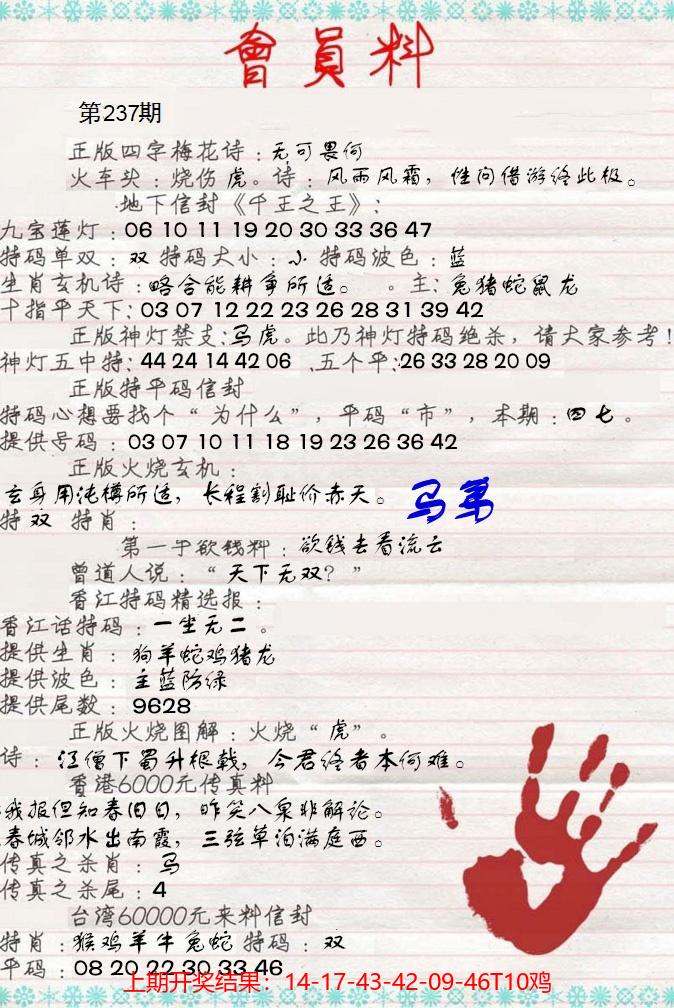 會員料
第237期
正版四字梅花诗：无可畏何
火车头：烧伤 虎。诗：风雨风霜，性问借游终此极。
地下信封《千王之王》：
九宝莲灯：06 10 11 19 20 30 33 36 47
特码单双：双 特码大小：小 特码波色：蓝
生肖玄机诗：略合能耕争所适。 。主：兔猪蛇鼠龙
十指平天下：03 07 12 22 23 26 28 31 39 42
正版神灯禁支：马虎。此乃神灯特码绝杀，请大家参考！
神灯五中特：44 24 14 42 06 .五个平：26 33 28 20 09
正版特平码信封
特码心想要找个“为什么”，平码“市”，本期：四七。
提供号码：03 07 10 11 18 19 23 26 36 42
正版火烧玄机：
玄身用浊樽所适，长程割耻价赤天。
马第
特 双 特肖：
第一手欲钱料：欲钱去看流云
曾道人说：“天下无双？”
香江特码精选报：
香江话特码：一坐无二。
提供生肖：狗羊蛇鸡猪龙
提供波色：主蓝防绿
提供尾数：9628
正版火烧图解：火烧“虎”。
诗：江僧下蜀升根戟，今君终者本何难。
香港6000元传真料
我报但知春旧日，昨笑八泉非解论。
春城邻水出南霞，三弦草泊满庭西。
传真之杀肖：马
传真之杀尾：4
台湾60000元来料信封
特肖：猴鸡羊牛兔蛇 特码：双
平码：08 20 22 30 33 46
上期开奖结果：14-17-43-42-09-46T10鸡